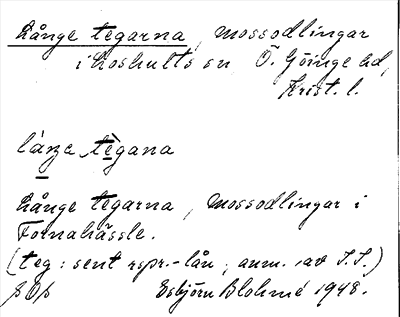 Långe tegarna, mossodlingar
i Loshults sn Ö. Göinge hd,
Krist. l.
låŋe tègana
Långe tegarna, mossodlingar i
Fornahässle.
(teg: sent rspr.-lån, anm. av I.I.)
Esbjörn Blohmé 1948.